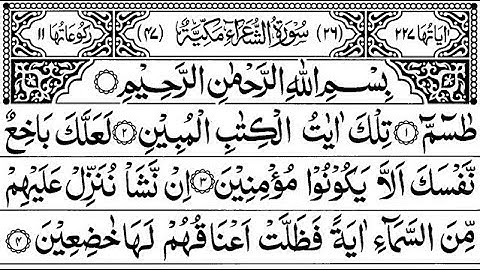 اٰيَاتُهَا ٢٢٧ (٢٦) سُوْرَةُ الشُّعَرَآءِ مَكِّيَّةٌ (٤٧) رُكُوْعَاتُهَا ١١
بِسْمِ اللّٰهِ الرَّحْمٰنِ الرَّحِيْمِ
طٰسٓمّٓ ۝١ تِلْكَ اٰيٰتُ الْكِتٰبِ الْمُبِيْنِ ۝٢ لَعَلَّكَ بَاخِعٌ
نَّفْسَكَ اَلَّا يَكُوْنُوْا مُؤْمِنِيْنَ ۝٣ اِنْ نَّشَاْ نُنَزِّلْ عَلَيْهِمْ
مِّنَ السَّمَآءِ اٰيَةً فَظَلَّتْ اَعْنَاقُهُمْ لَهَا خٰضِعِيْنَ ۝٤